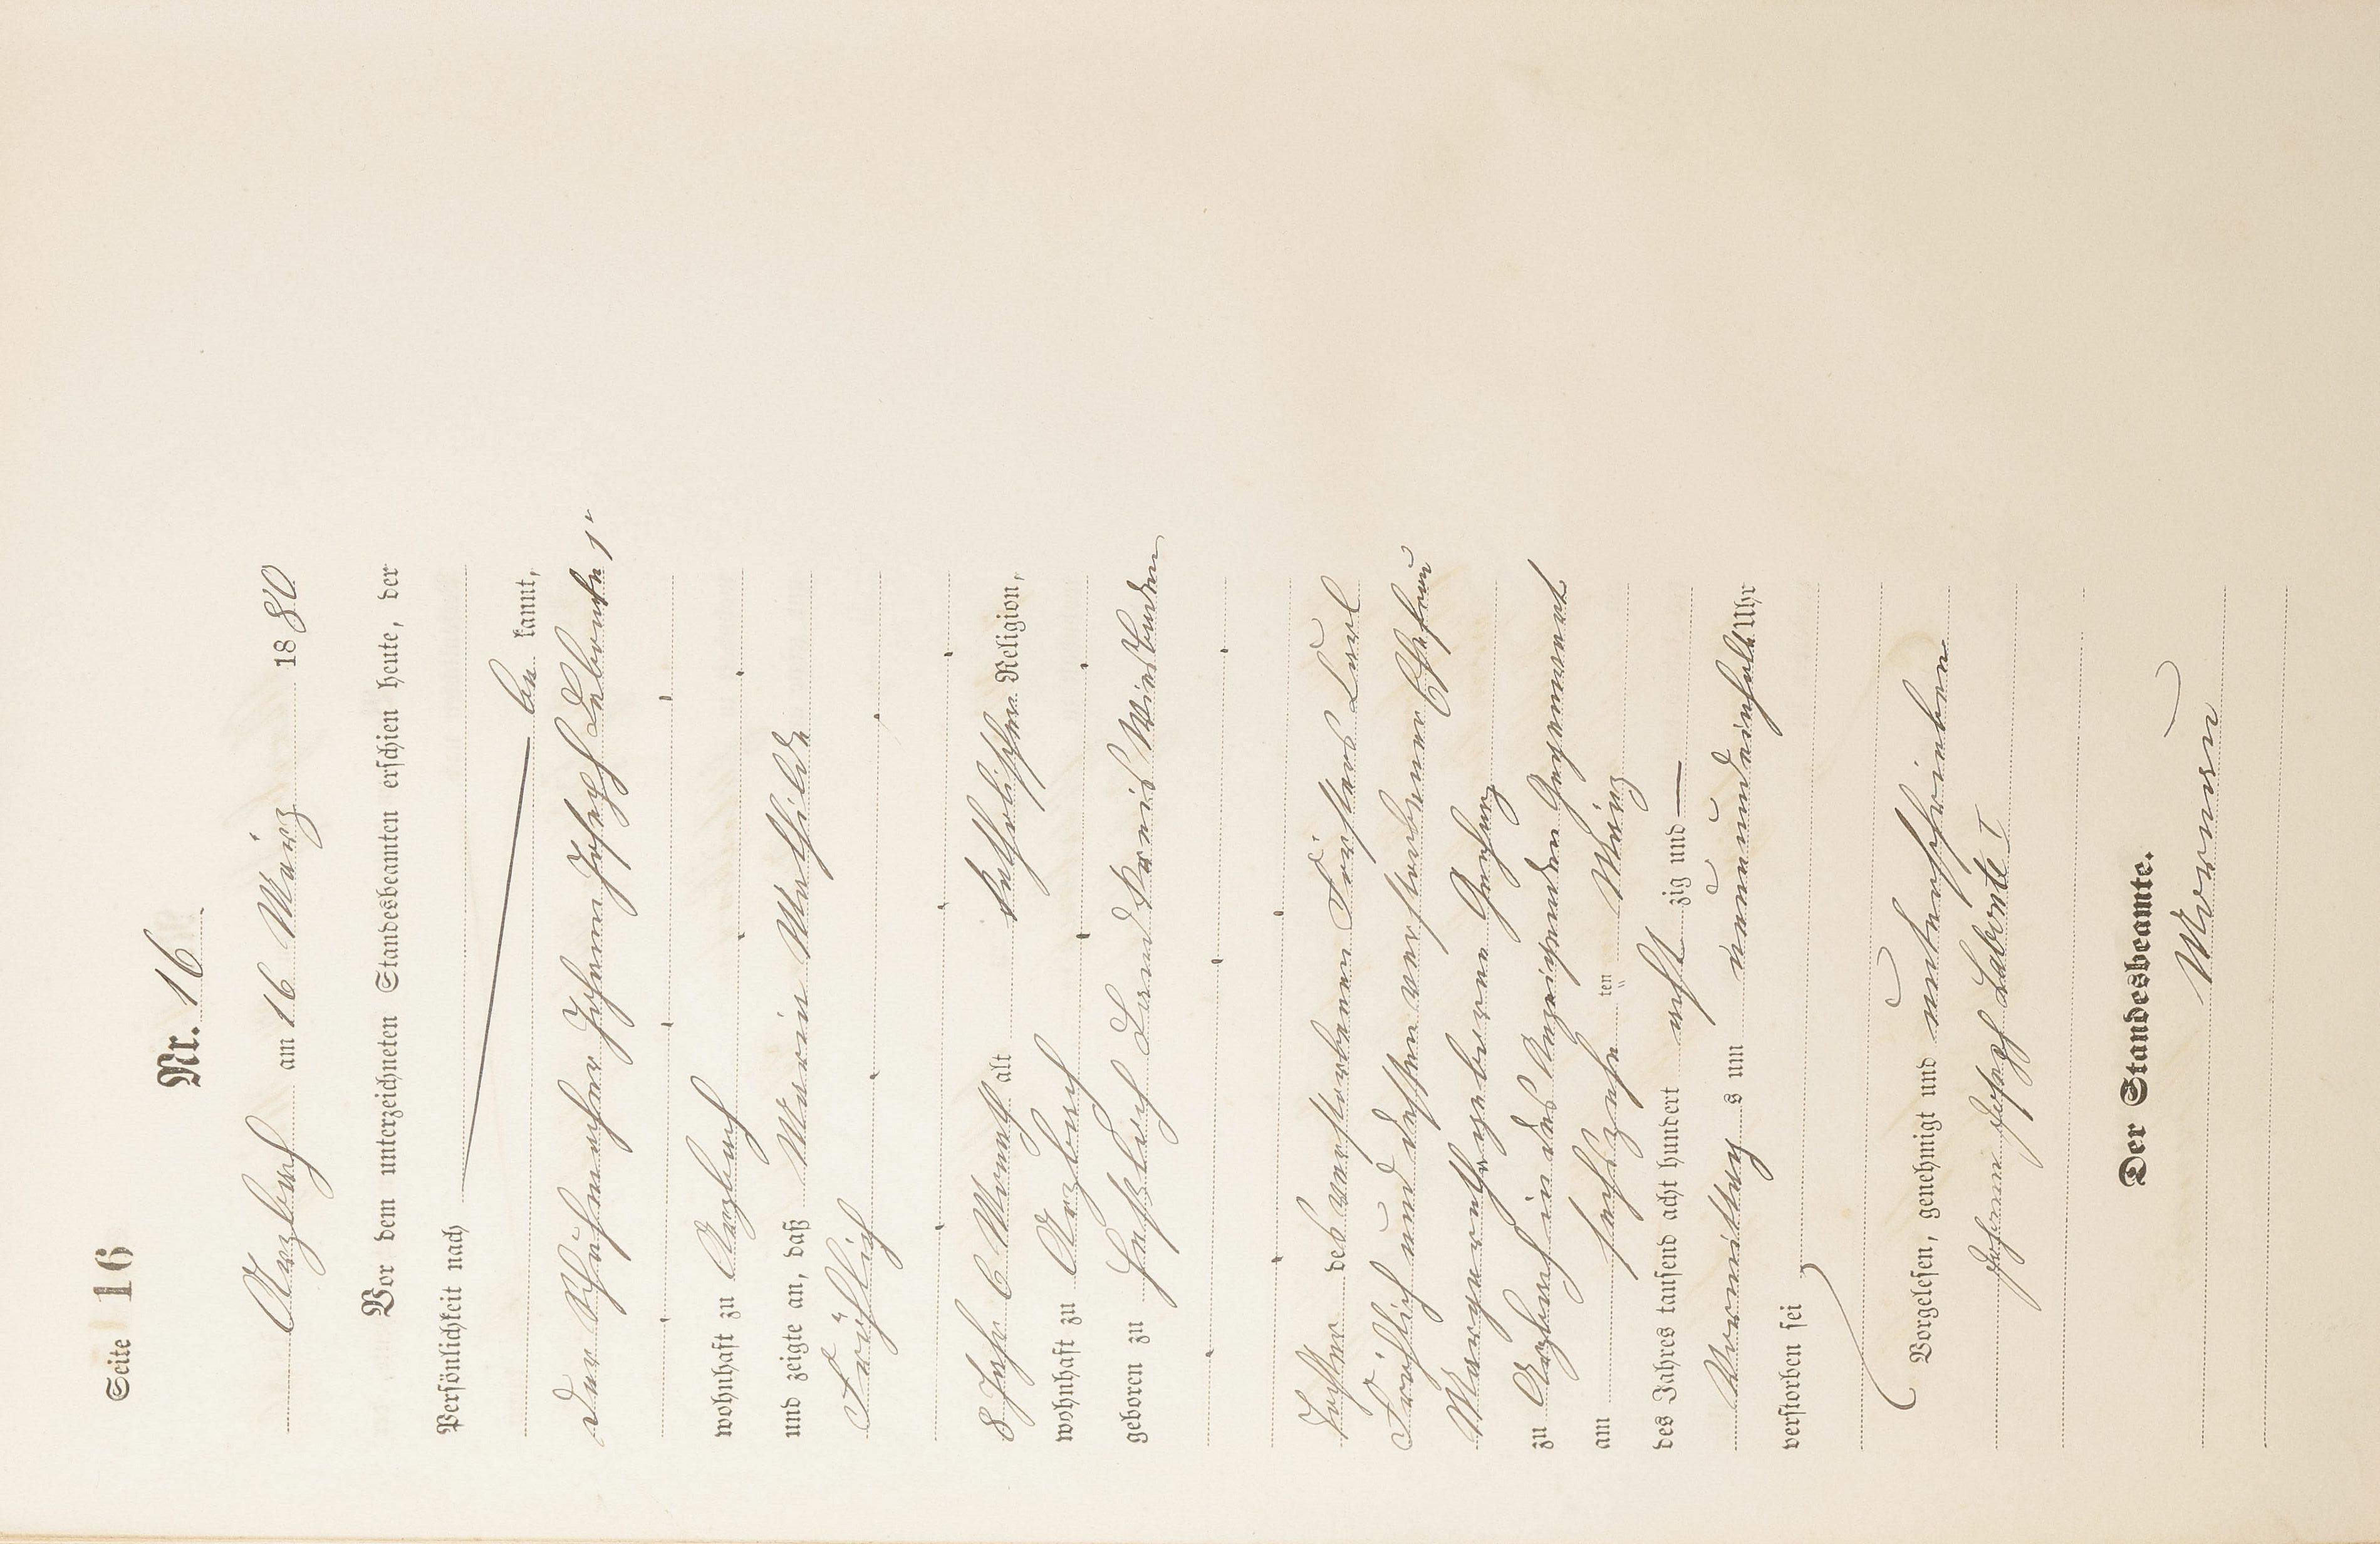 Seite 16
Nr. 16
Arzbach am 16 März 1880
Vor dem unterzeichneten Standesbeamten erschien heute, der
Persönlichkeit nach
be kannt,
der Schuhmacher Johann Joseph Labonte 1r
wohnhaft zu Arzbach
und zeigte an, daß Maria Mathilde
Fröhlich
8 Jahr 6 Monath alt katholischer Religion,
wohnhaft zu Arzbach
geboren zu Haßloch Landkreis Wiesbaden
Tochter des verstorbenen Försters Carl
Fröhlich und dessen verstorbener Ehefrau
Margaretha geborene
zu Arzbach in des Anzeigenden Gegenwart
am sechszehn ten März
des Jahres tausend acht hundert acht zig und
Vormittag s um neunundeinhalb Uhr
verstorben sei
Vorgelesen, genehmigt und unterschrieben
Johann Joseph Labonte I
Der Standesbeamte.